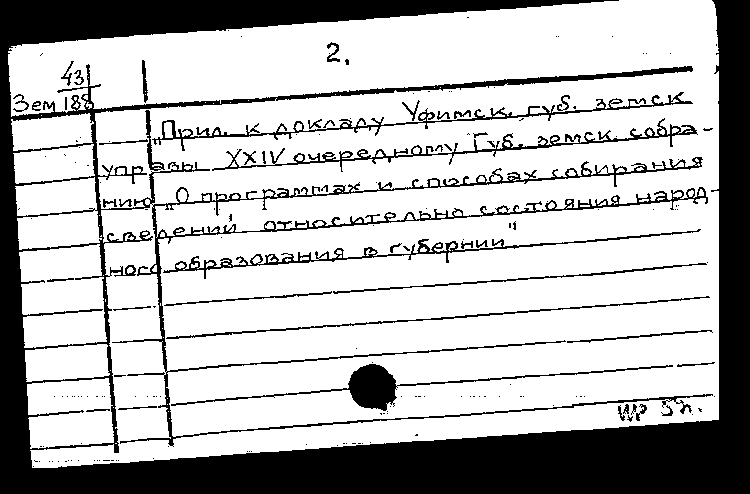 2.
43
Зем 188
„Прил. к докладу Уфимск. губ. земск
управы XXIV очередному Губ. земск. собра-
нию „О программах и способах собирания
сведений относительно состояния народ-
ного образования в губернии".